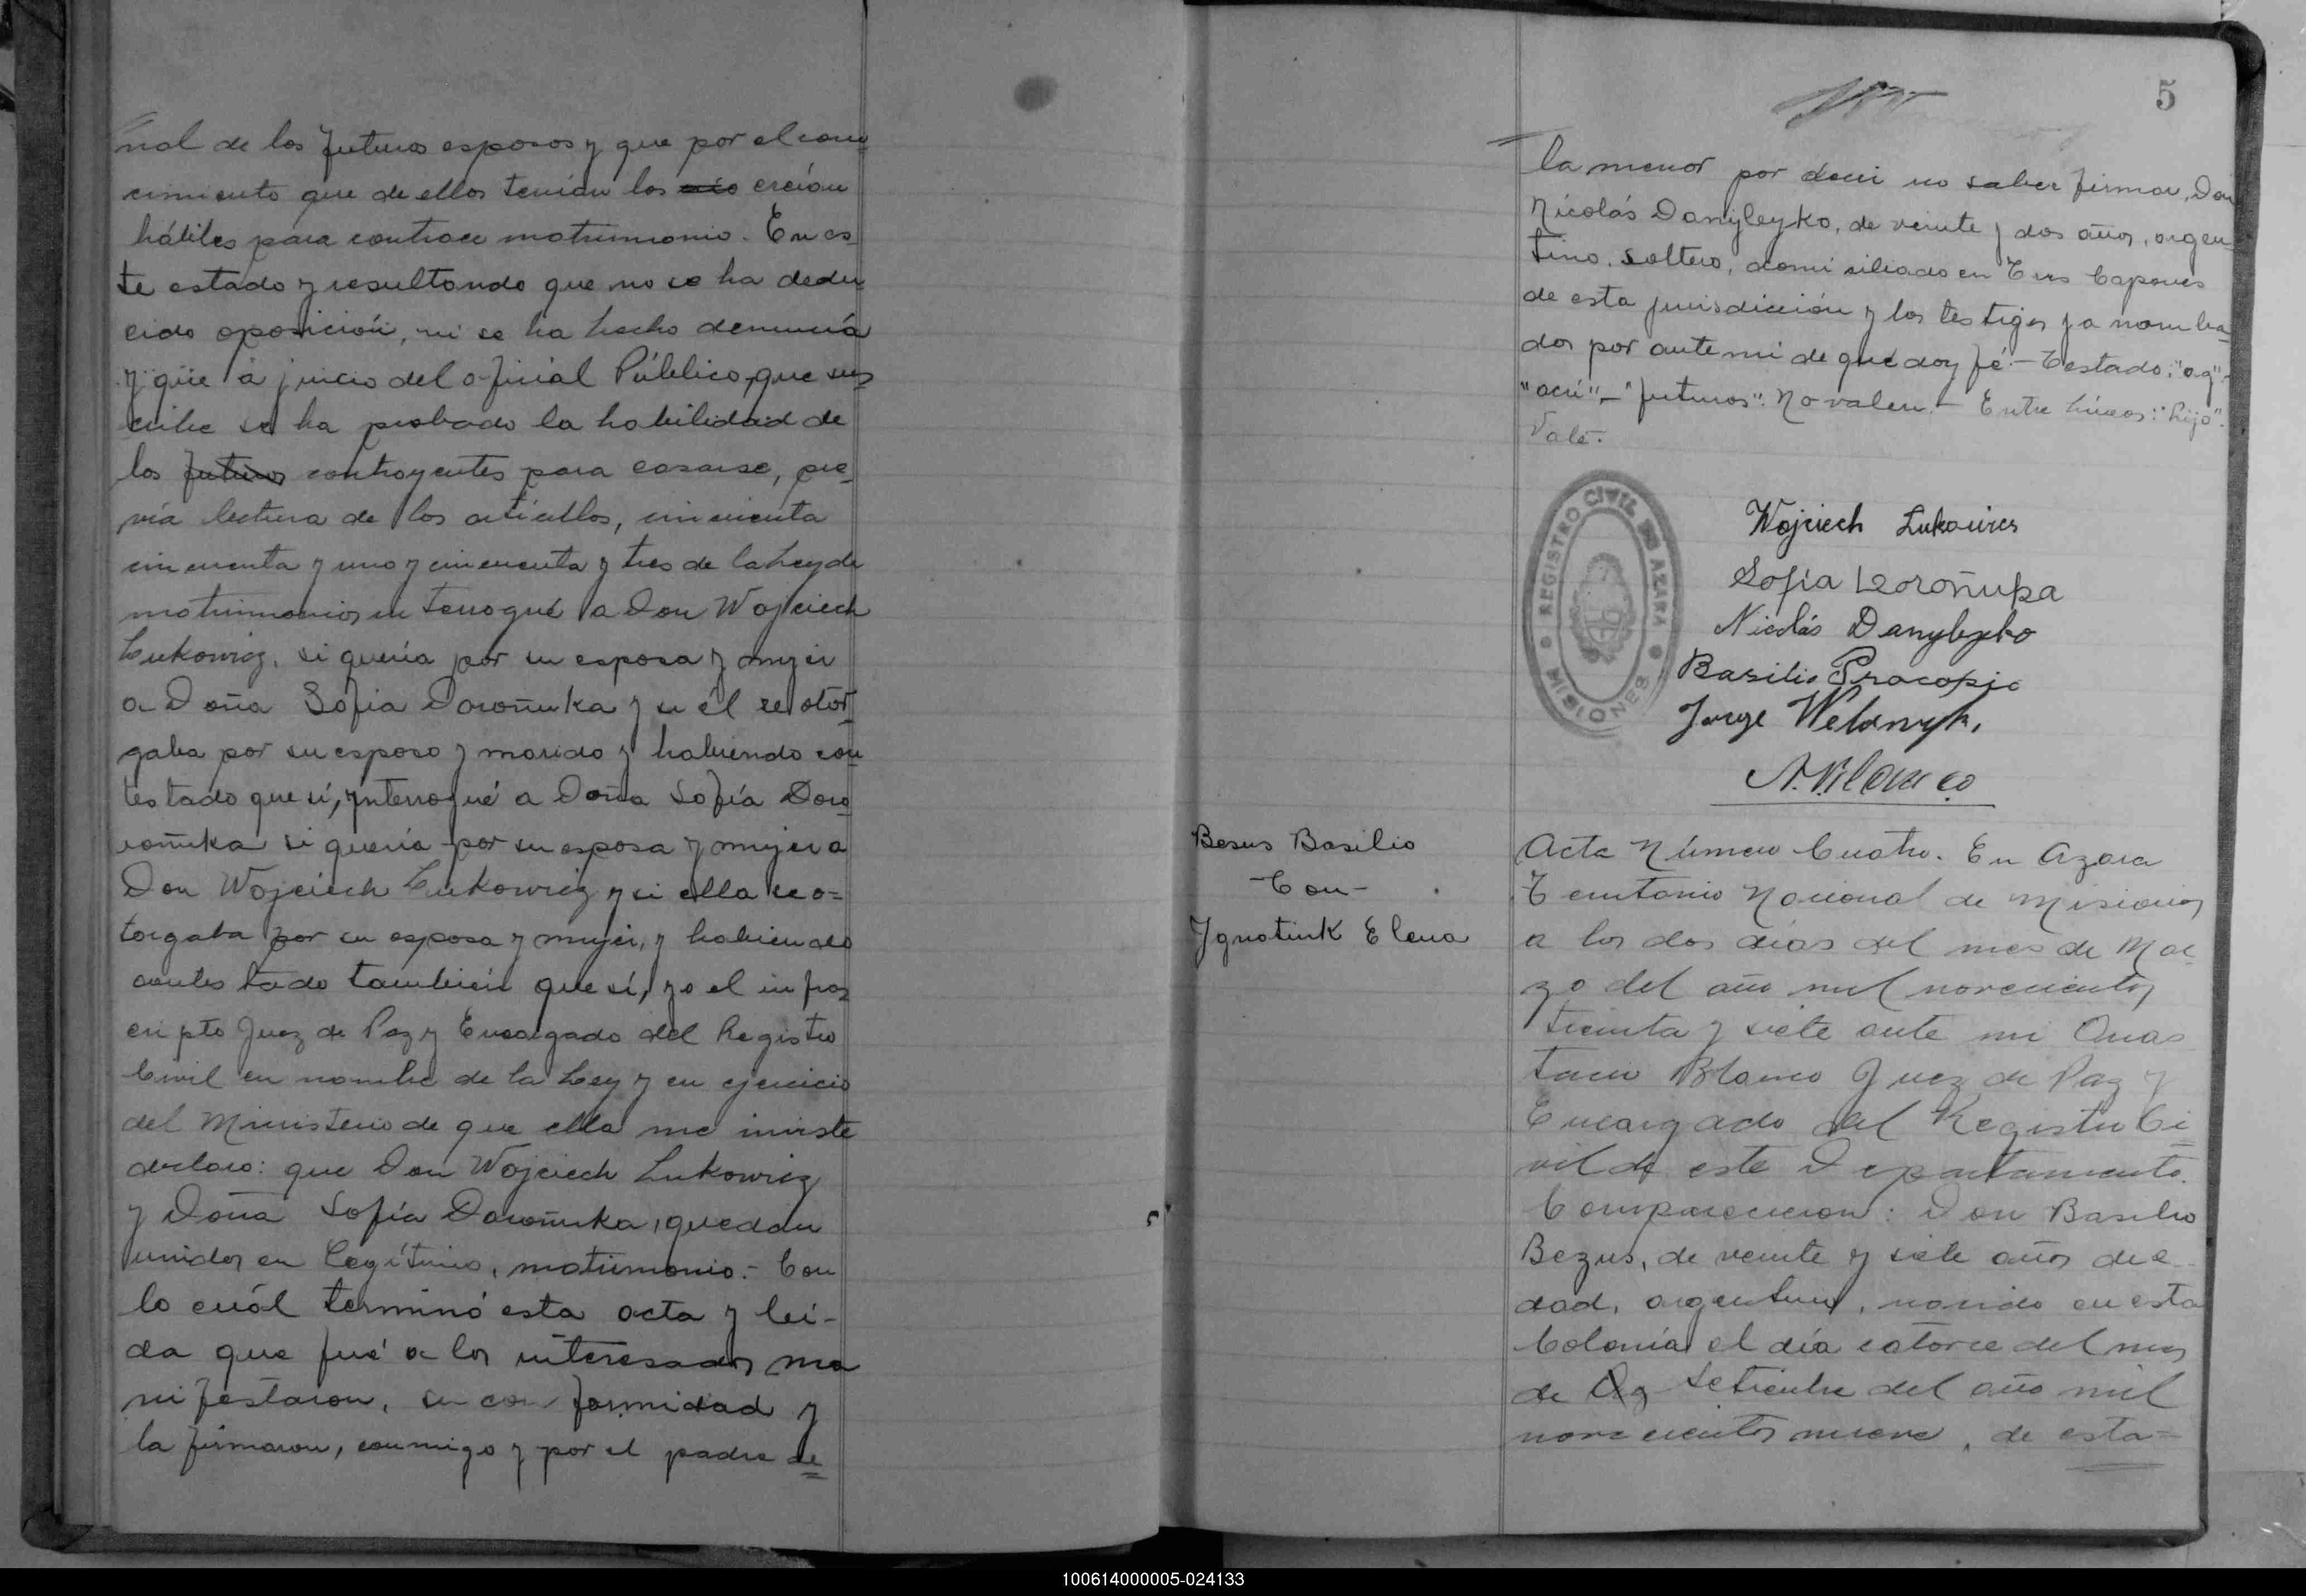 nal de los futuros esposos y que por el cono
cimiento que de ellos tenían los creían
hábiles para contraer matrimonio. En es
te estado y resultando que no se ha dedu
cido oposición, ni se ha hecho denuncia
y que a juicio del oficial Público, que sus
cribe se ha probado la habilidad de
los futuros contrayentes para casarse, pre
via lectura de los artícullos, cincuenta
cincuenta y uno y cincuenta y tres de la Ley de
matrimonios interrogué a Don Wojciech
Lukowicz, si quería por su esposa y mujer
a Doña Sofia Doroñuka y si él se otor
gaba por su esposo y marido y habiendo con
testado que sí, interrogué a Doña Sofía Doro
roñuka si quería por su esposa y mujer a
Don Wojciech Lukowicz y si ella se o=
torgaba por su esposa y mujer, y habiendo
contestado también que sí, yo el infras
cripto Juez de Paz y Encargado del Registro
Civil en nombre de la Ley y en ejercicio
del Ministerio de que ella me inviste
declaro: que Don Wojciech Lukowicz
y Doña Sofía Doroñuka, quedan
unidos en legítimo, matrimonio.- Con
lo cuál terminó esta acta y leí-
da que fué a los interesados ma
nifestaron, su conformidad y
la firmaron, conmigo y por el padre de
5
la menor por decir no saber firmar, Don
Nicolás Danyleyko, de veinte y dos años, argen
tino, soltero, domisiliado en Tres Capones
de esta jurisdicción y los testigos ya nombra
dos por ante mi de que doy fé.- Testado: "ag"-
"acri"-"futuros": No valen.- Entre líneas: "hijo".
Vale.
REGISTRO CIVIL DE AZARA
MISIONES
Wojciech Lukowicz
Sofía Doroñuka
Nicolás Danyleyko
Basilio Procopio
Jorge
A. Blanco
Besus Basilio
-Con-
Ygnatiuk Elena
Acta Número Cuatro. En Azara
Territorio Nacional de Misiones
a los dos días del mes de Mar
zo del año mil novecientos
treinta y siete ante mi Anas
tacio Blanco Juez de Paz y
Encargado del Registro Ci
vil de este Departamento.
Comparecieron: Don Basilio
Bezus, de veinte y siete años de e
dad, argentino, nacido en esta
Colonia el día catorce del mes
de Ag Setiembre del año mil
novecientos nueve, de esta=
100614000005-024133